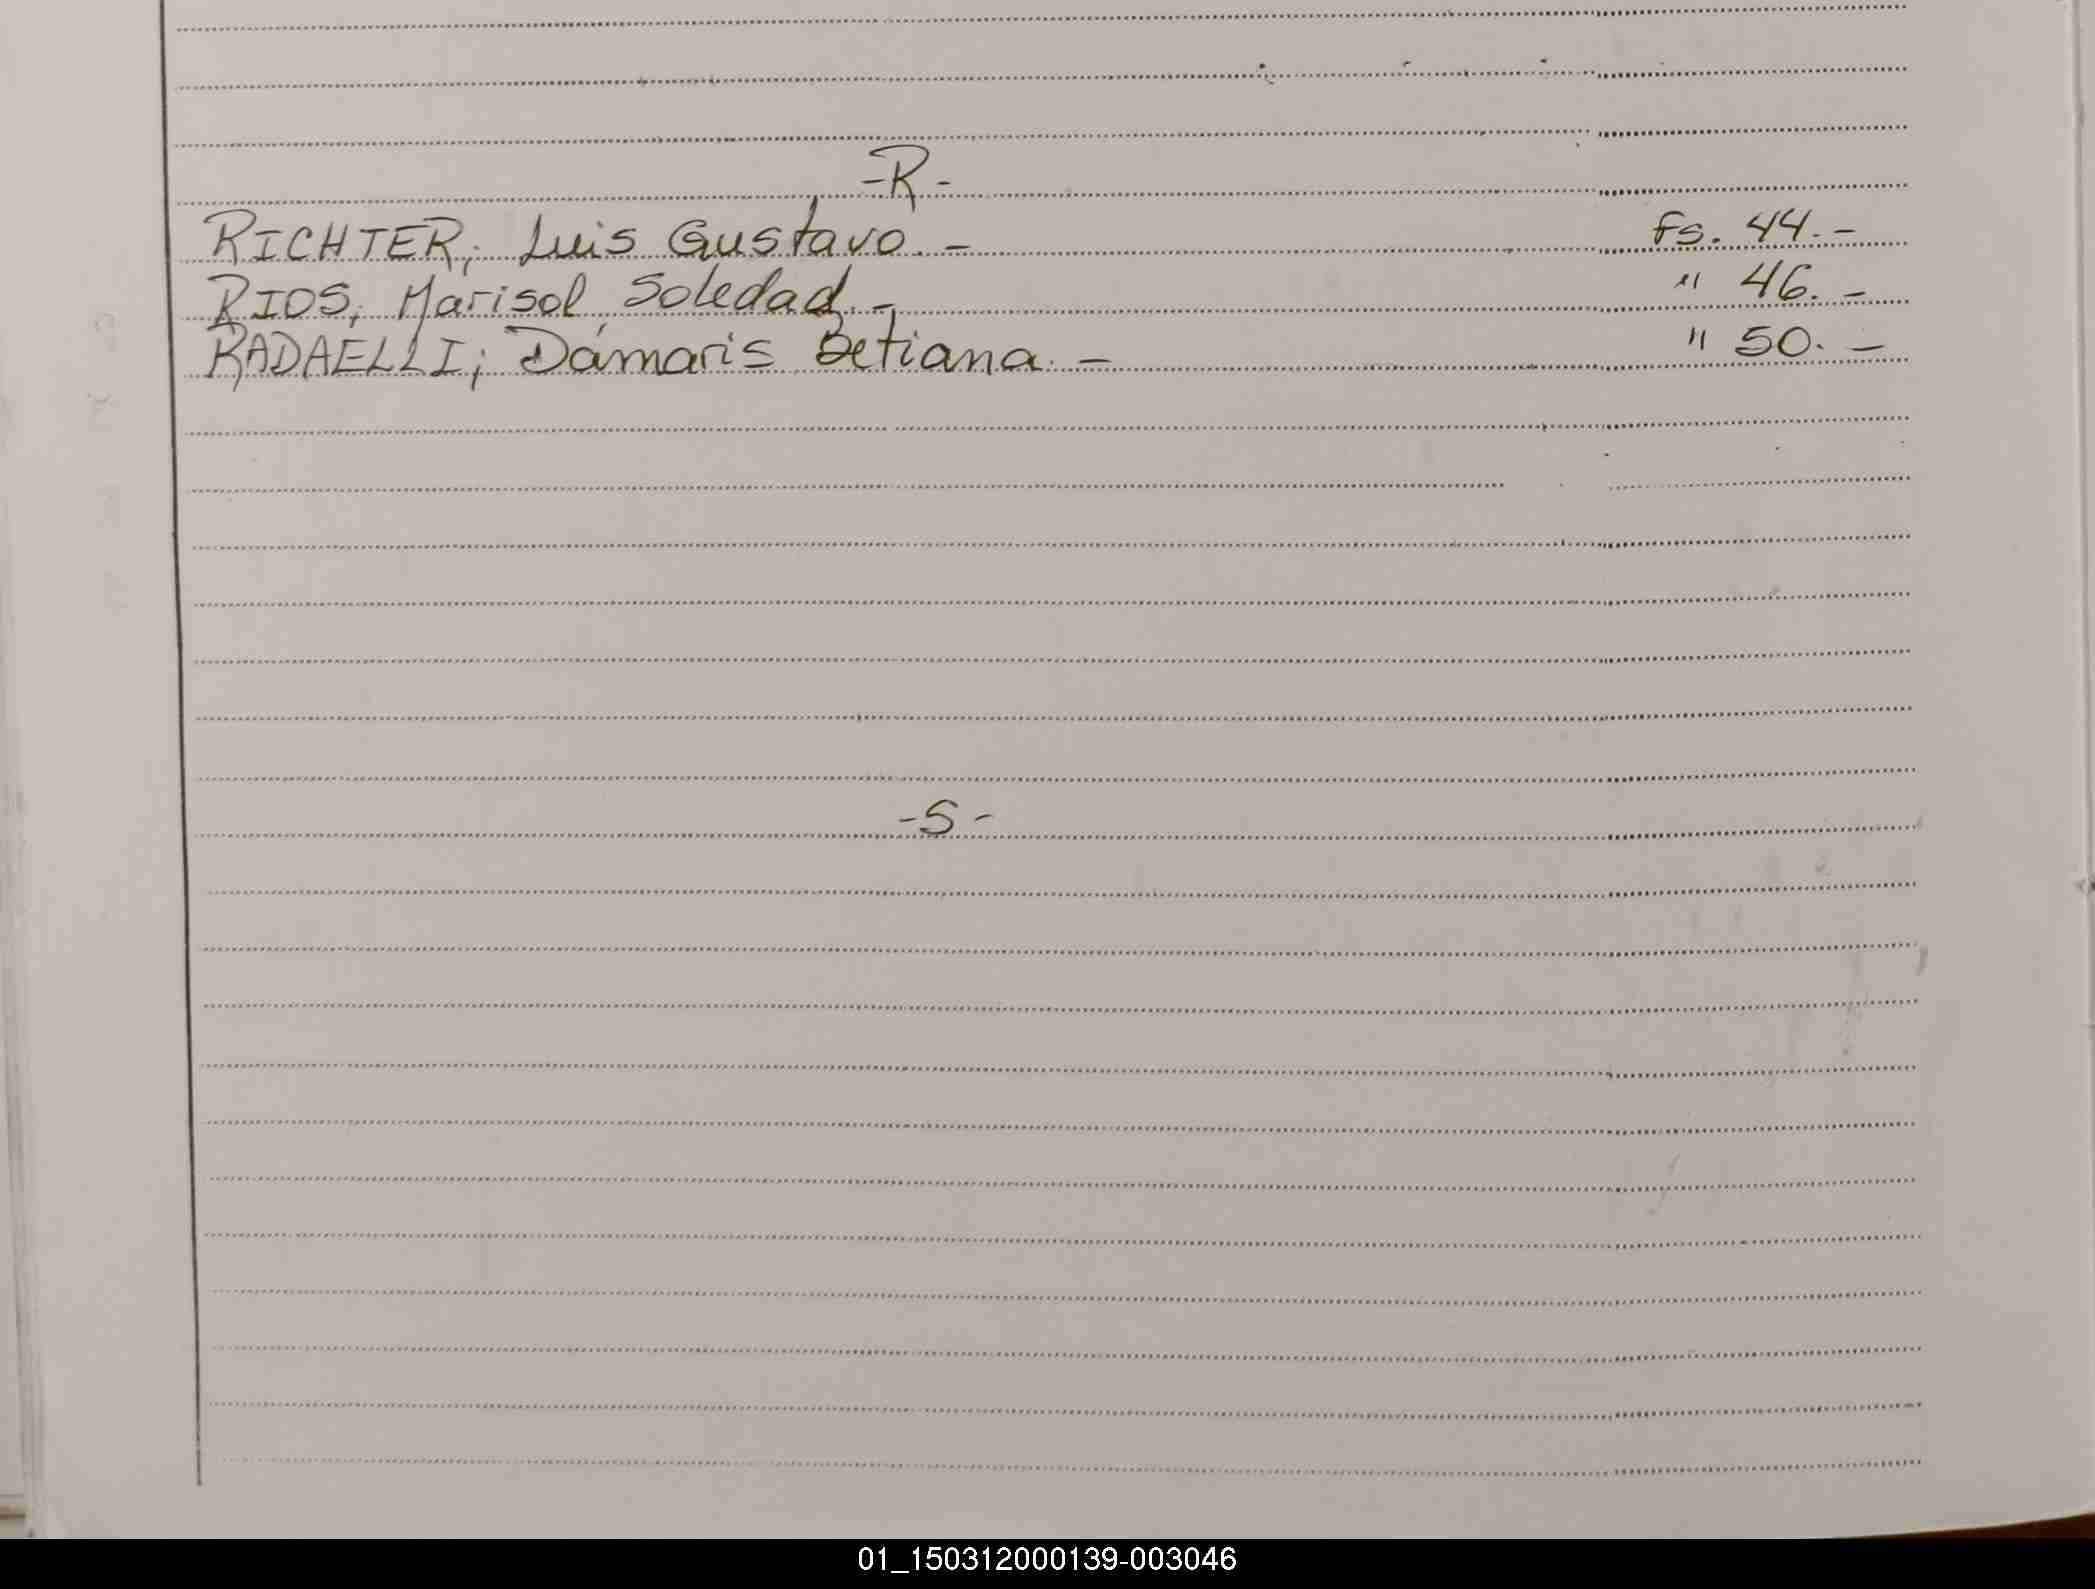 -R-
RICHTER; Luis Gustavo.- fs. 44.-
RIOS; Marisol Soledad.- " 46.-
RADAELLI; Dámaris Betiana.- " 50.-
-S-
01_150312000139-003046